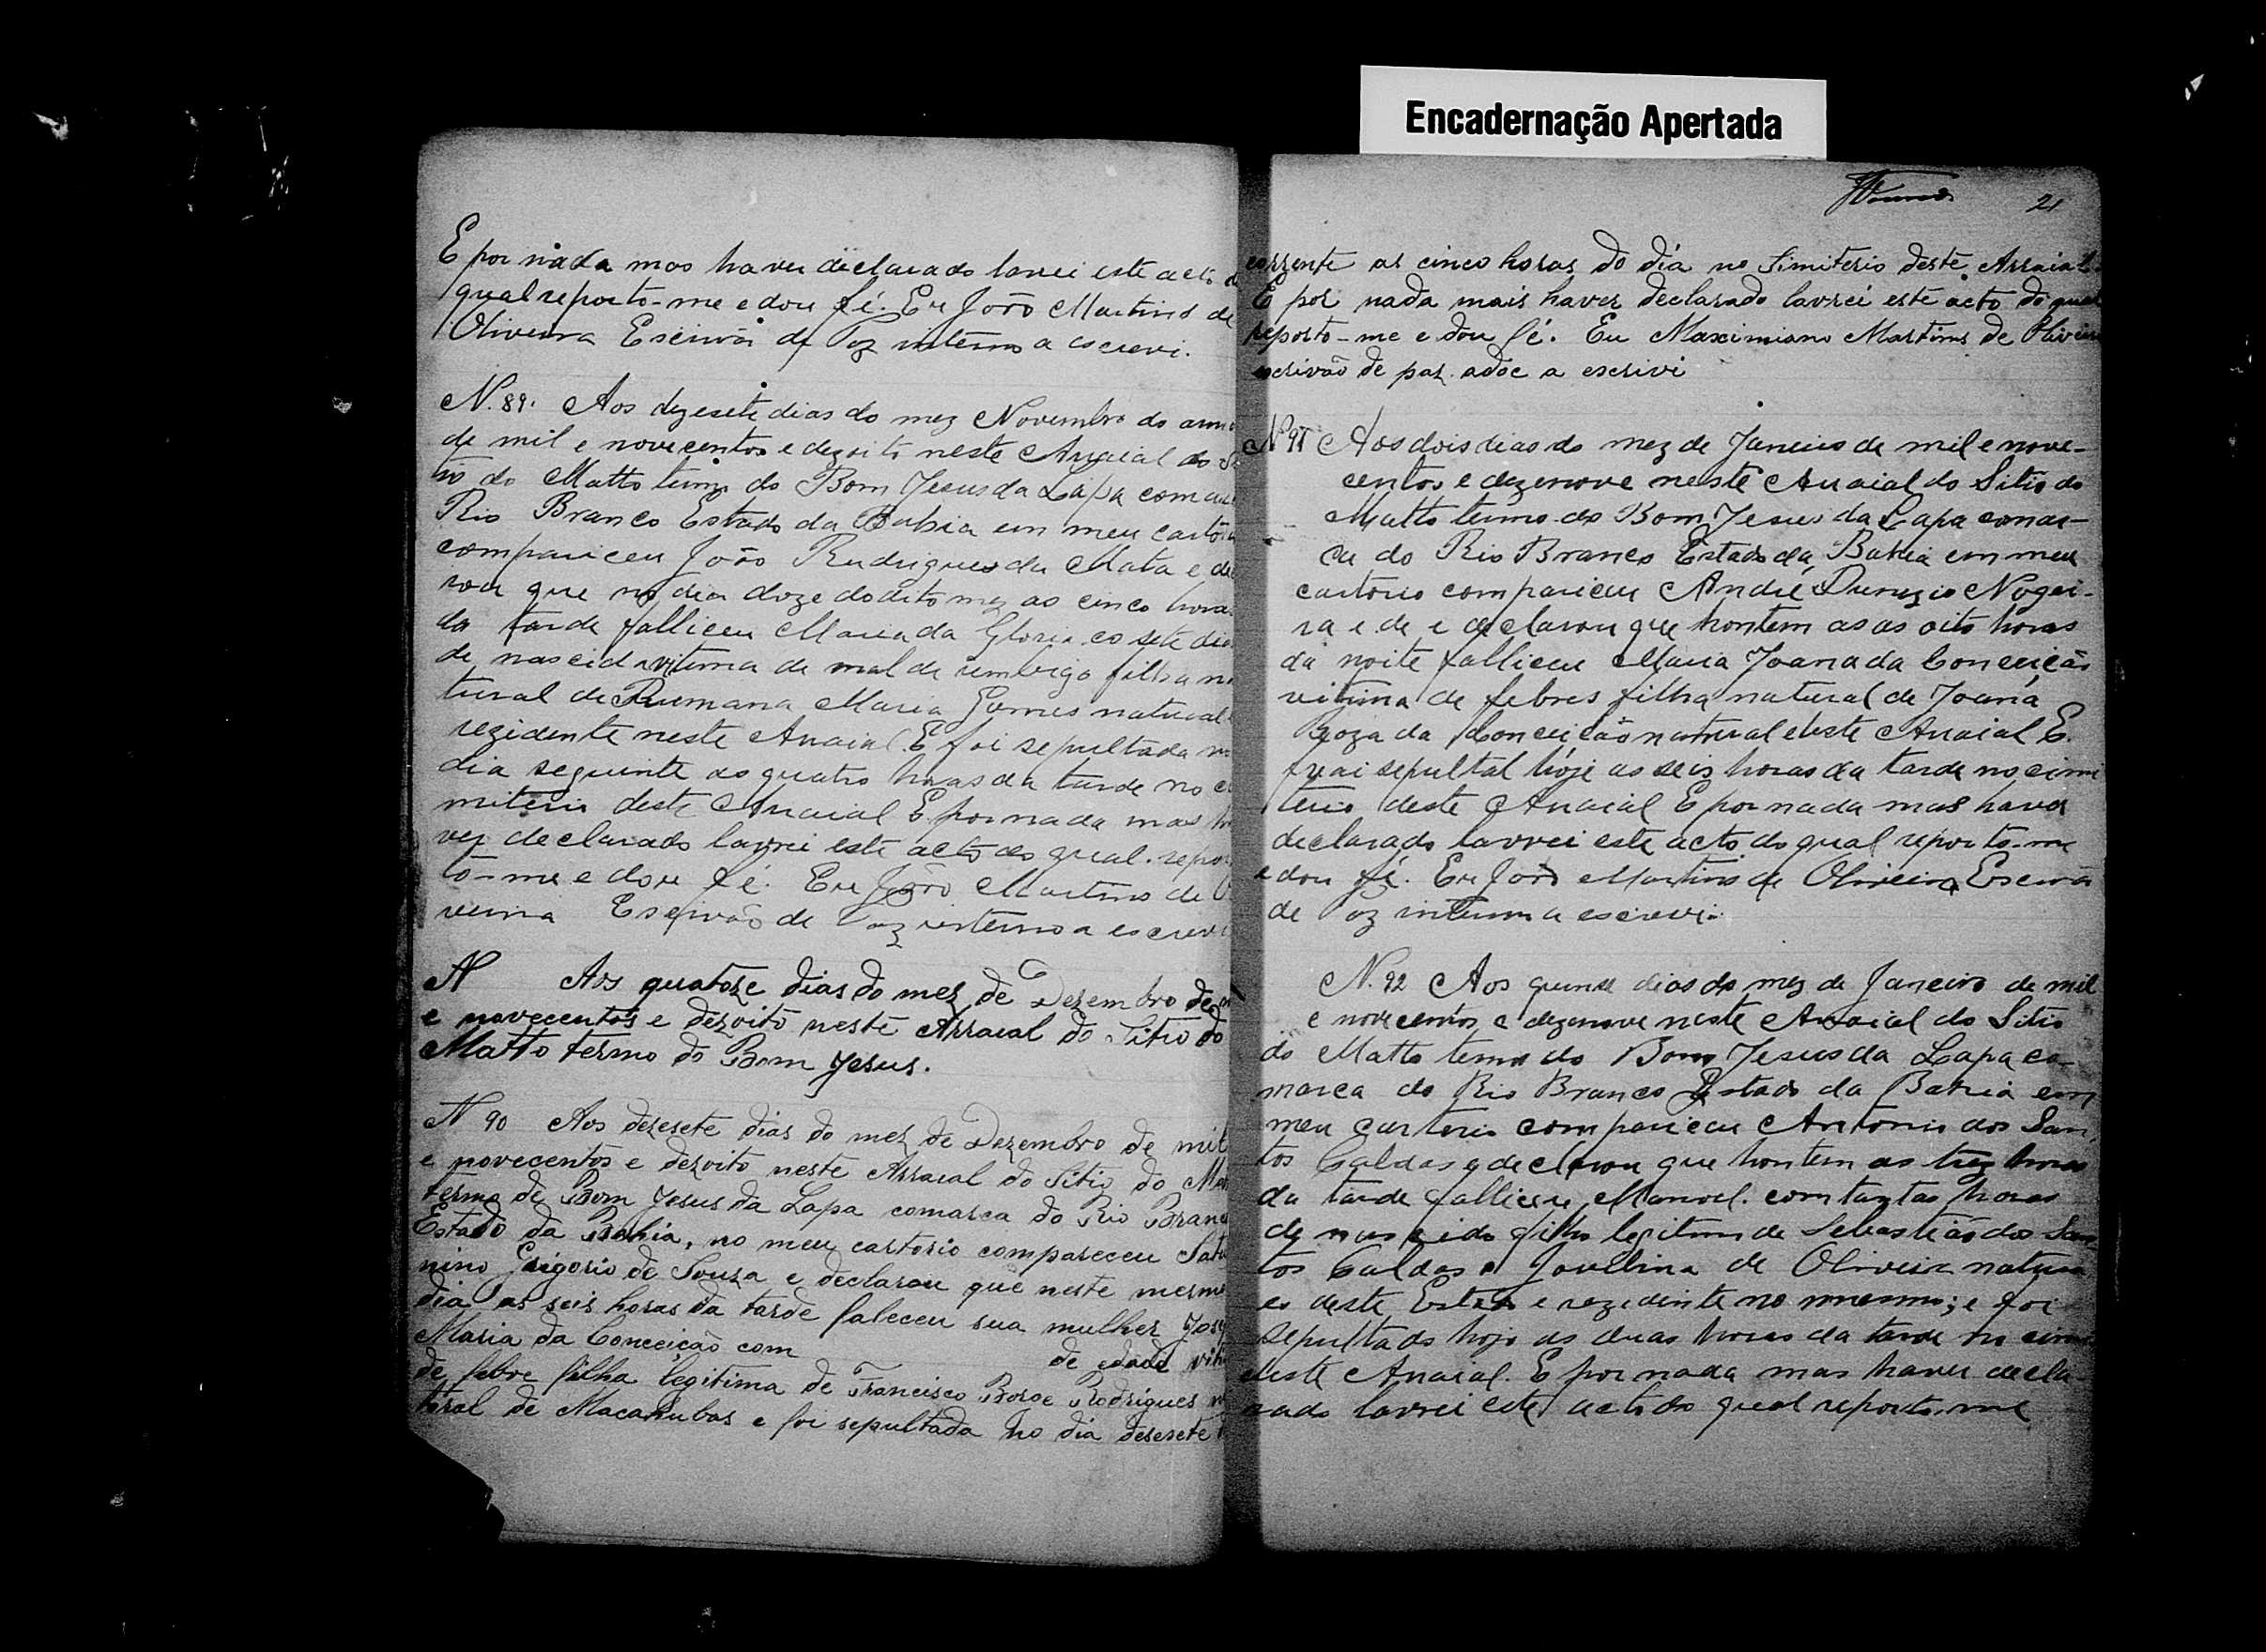 Encadernação Apertada
E por nada mas haver declarado lavrei este acto d
qual reporto-me e dou fé. Eu João Martins de
Oliveira Escrivão de Paz interno a escrevi.
N. 89. Aos dezesete dias do mez Novembro do anno
de mil e novecentos e dezoito neste Arraial do Si
tio do Matto termo do Bom Jesus da Lapa comar
Rio Branco Estado da Bahia em meu cartor
compariceu João Rudrigues da Mata e de
rou que no dia doze do dito mez as cinco hora
da tarde falliceu Maria da Gloria co sete dia
de nascida vitima de mal de umbigo filha na
tural de Rumana Maria Gomes natural
rezidente neste Arraial. E foi sepultada no
dia seguinte as quatro horas da tarde no ci
miterio deste Arraial E por nada mas ha
ver declarado lavrei este acto do qual repor
to-me e dou fé. Eu João Martins de O
veira Escrivão de Paz interno a escrevi
N Aos quatorze dias do mez de Dezembro de
e novecentos e dezoito neste Arraial do Sitio do
Matto termo do Bom Jesus.
N 90 Aos dezesete dias do mez de Dezembro de mil
e novecentos e dezoito neste Arraial do Sitio do Ma
termo de Bom Jesus da Lapa comarca do Rio Branc
Estado da Bahia, no meu cartorio compareceu Satu
nino Grigorio de Souza e declarou que neste mesmo
dia as seis horas da tarde faleceu sua mulher Jose
Maria da Conceição com de edade viti
de febre filha legitima de Francisco Borge Rodrigues n
tural de Macahubas e foi sepultada no dia desesete
21
corrente as cinco horas do dia no Simiterio deste Arraial.
E por nada mais haver declarado lavrei este acto do qual
reporto-me e dou fé. Eu Maximiano Martins de Oliveira
escrivão de paz adoc a escrivi
Nº 91 Aos dois dias do mez de Janeiro de mil e nove-
centos e dezenove neste Arraial do Sitio do
Matto termo do Bom Jesus da Lapa comar-
ca do Rio Branco Estado da Bahia em meu
cartorio compariceu André Nogei-
ra e de e declarou que hontem as as oito horas
da noite falliceu Maria Joana da Conceição
vitima de febres filha natural de Joana
Roza da Conceição natural deste Arraial E.
foai sepultal hoje as seis horas da tarde no cimi
terio deste Arraial E por nada mas haver
declarado lavrei este acto do qual reporto-me
e dou fé. Eu João Martins de Oliveira Escrivão
de Paz interno a escrevi.
N. 92 Aos quinze dias do mez de Janeiro de mil
e novecentos e dezenove neste Arraial do Sitio
do Matto termo do Bom Jesus da Lapa co-
marca do Rio Branco Estado da Bahia em
meu cartorio compariceu Antonio dos San-
tos Caldas e declarou que hontem as trez horas
da tarde falliceu Manoel. com tantas horas
de nascido filho legitimo de Sebastião dos San
tos Caldas e Jovelina de Oliveira natura
es deste Estado e rezidente no mesmo; e foi
sepultado hoje as duas horas da tarde no cimi
deste Arraial. E por nada mas haver decla
rado lavrei este acto do qual reporto-me